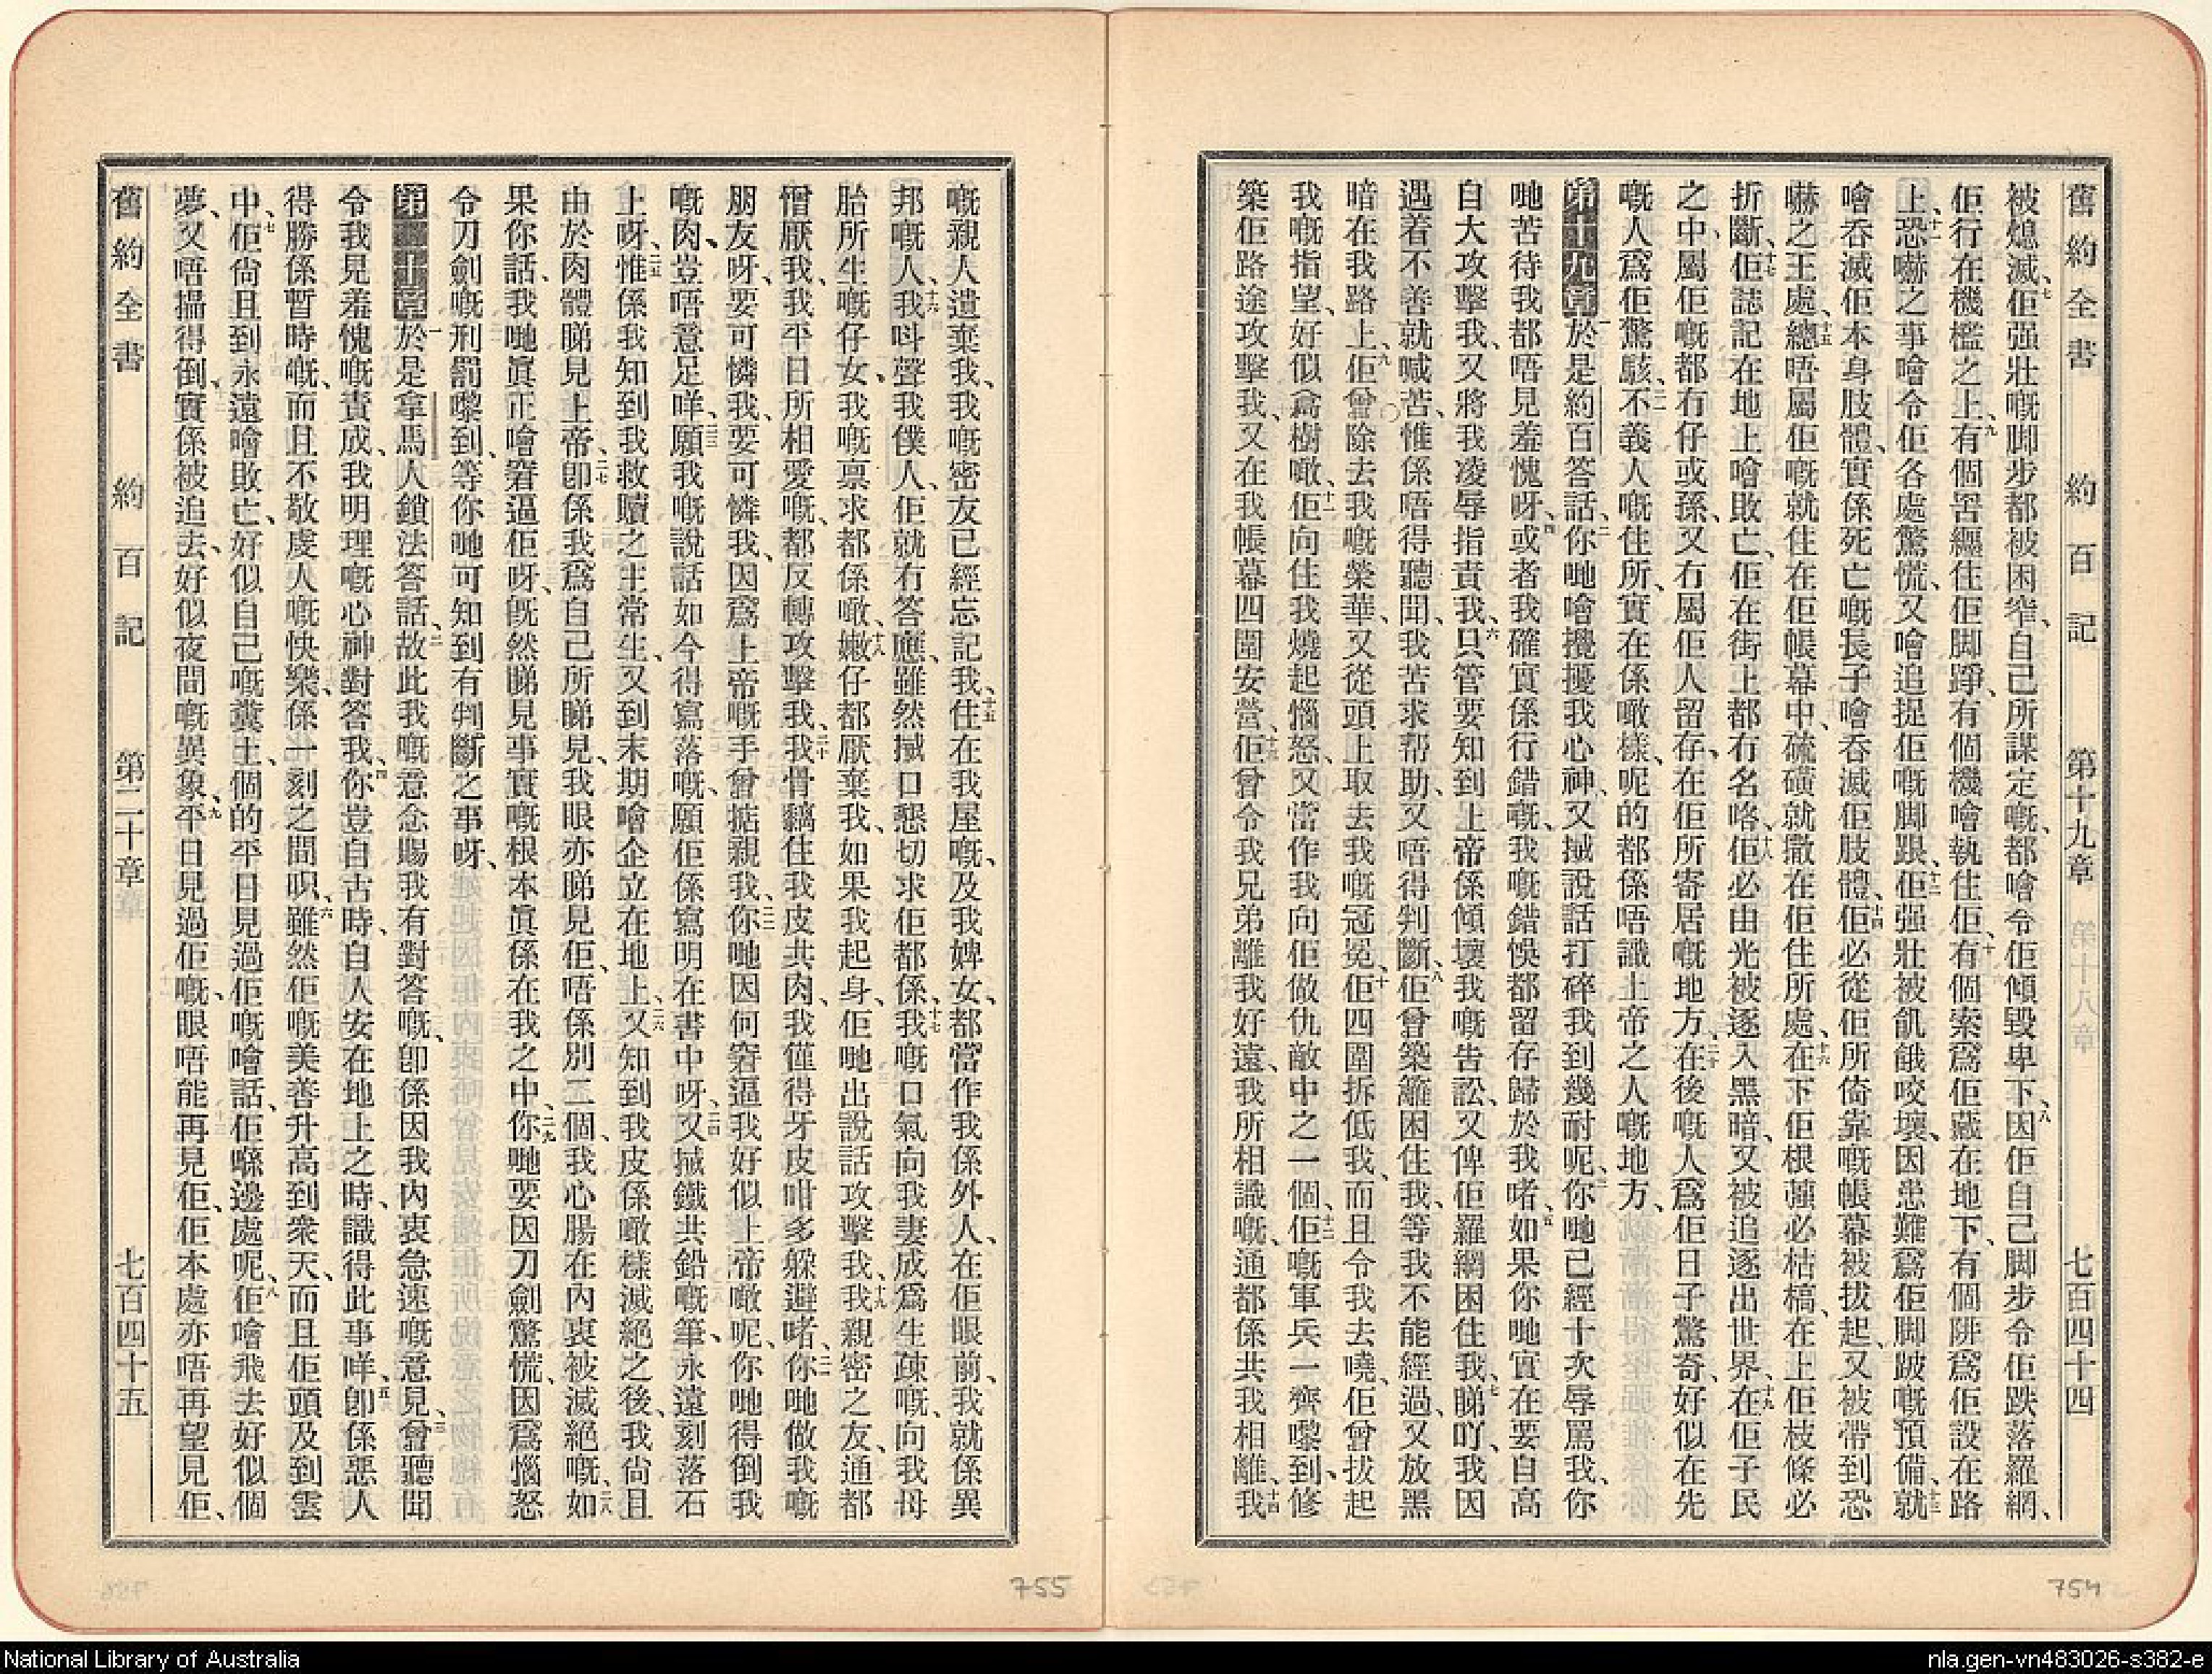 舊約全書 約百記 第十九章 七百四十四
被熄滅、七佢强壯嘅脚步都被困窄、自己所謀定嘅、都噲令佢傾毀卑下、八因佢自己脚步令佢跌落羅網、
佢行在機檻之上、九有個罟纏住佢脚踭、有個機噲執住佢、十有個索爲佢藏在地下、有個阱爲佢設在路
上、十一恐嚇之事噲令佢各處驚慌、又噲追捉佢嘅脚跟、十二佢强壯被飢餓咬壞、因患難爲佢脚跛嘅預備、十三就
噲吞滅佢本身肢體、實係死亡嘅長子噲吞滅佢肢體、十四佢必從佢所倚靠嘅帳幕被拔起、又被帶到恐
嚇之王處、十五總唔屬佢嘅就住在佢帳幕中、硫磺就撒在佢住所處、十六在下佢根蔃必枯槁、在上佢枝條必
折斷、十七佢誌記在地上噲敗亡、佢在街上都冇名咯、十八佢必由光被逐入黑暗、又被追逐出世界、十九在佢子民
之中、屬佢嘅都冇仔或孫、又冇屬佢人留存、在佢所寄居嘅地方、二十在後嘅人爲佢日子驚奇、好似在先
嘅人爲佢驚駭、二一不義人嘅住所、實在係噉樣、呢的都係唔識上帝之人嘅地方、
第十九章一於是約百答話、二你哋噲攪擾我心神、又搣說話打碎我到幾耐呢、三你哋已經十次辱罵我、你
哋苦待我都唔見羞愧呀、四或者我確實係行錯嘅、我嘅錯悞都留存歸於我啫、五如果你哋實在要自高
自大攻擊我、又將我凌辱指責我、六只管要知到上帝係傾壞我嘅告訟、又俾佢羅網困住我、七睇吖、我因
遇着不善就喊苦、惟係唔得聽聞、我苦求帮助、又唔得判斷、八佢曾築籬困住我、等我不能經過、又放黑
暗在我路上、九佢曾除去我嘅榮華、又從頭上取去我嘅冠冕、十佢四圍拆低我、而且令我去嘵、佢曾拔起
我嘅指望、好似禽樹噉、十一佢向住我燒起惱怒、又當作我向佢做仇敵中之一個、十二佢嘅軍兵一齊嚟到、修
築佢路途攻擊我、又在我帳幕四圍安營、十三佢曾令我兄弟離我好遠、我所相識嘅、通都係共我相離、十四我
嘅親人遺棄我、我嘅密友已經忘記我、十五住在我屋嘅、及我婢女、都當作我係外人、在佢眼前、我就係異
邦嘅人、十六我呌聲我僕人、佢就冇答應、雖然搣口懇切求佢都係、十七我嘅口氣向我妻成爲生疎嘅、向我母
胎所生嘅仔女、我嘅禀求都係噉、十八嫩仔都厭棄我、如果我起身、佢哋出說話攻擊我、十九我親密之友、通都
憎厭我、我平日所相愛嘅、都反轉攻擊我、二十我骨黐住我皮共肉、我僅得牙皮咁多躱避啫、二一你哋做我嘅
朋友呀、要可憐我、要可憐我、因爲上帝嘅手曾掂親我、二二你哋因何窘逼我好似上帝噉呢、你哋得倒我
嘅肉、豈唔意足咩、二三願我嘅說話如今得寫落嘅、願佢係寫明在書中呀、二四又搣鐵共鉛嘅筆、永遠刻落石
上呀、二五惟係我知到我救贖之主常生、又到末期噲企立在地上、二六又知到我皮係噉樣滅絕之後、我尙且
由於肉體睇見上帝、二七卽係我爲自己所睇見、我眼亦睇見佢、唔係別二個、我心腸在內衷被滅絕嘅、二八如
果你話、我哋眞正噲窘逼佢呀、旣然睇見事實嘅根本眞係在我之中、二九你哋要因刀劍驚慌、因爲惱怒
令刀劍嘅刑罰嚟到、等你哋可知到有判斷之事呀、
第二十章一於是拿馬人鎖法答話、二故此我嘅意念賜我有對答嘅、卽係因我內衷急速嘅意見、三曾聽聞
令我見羞愧嘅責成、我明理嘅心神對答我、四你豈自古時、自人安在地上之時、識得此事咩、五卽係惡人
得勝係暫時嘅、而且不敬虔人嘅快樂、係一刻之間呮、六雖然佢嘅美善升高到衆天、而且佢頭及到雲
中、七佢尙且到永遠噲敗亡、好似自己嘅糞土、個的平日見過佢嘅噲話、佢喺邊處呢、八佢噲飛去好似個
夢、又唔搵得倒、實係被追去、好似夜間嘅異象、九平日見過佢嘅、眼唔能再見佢、佢本處亦唔再望見佢、
舊約全書 約百記 第二十章 七百四十五
754
755
National Library of Australia
nla.gen-vn483026-s382-e